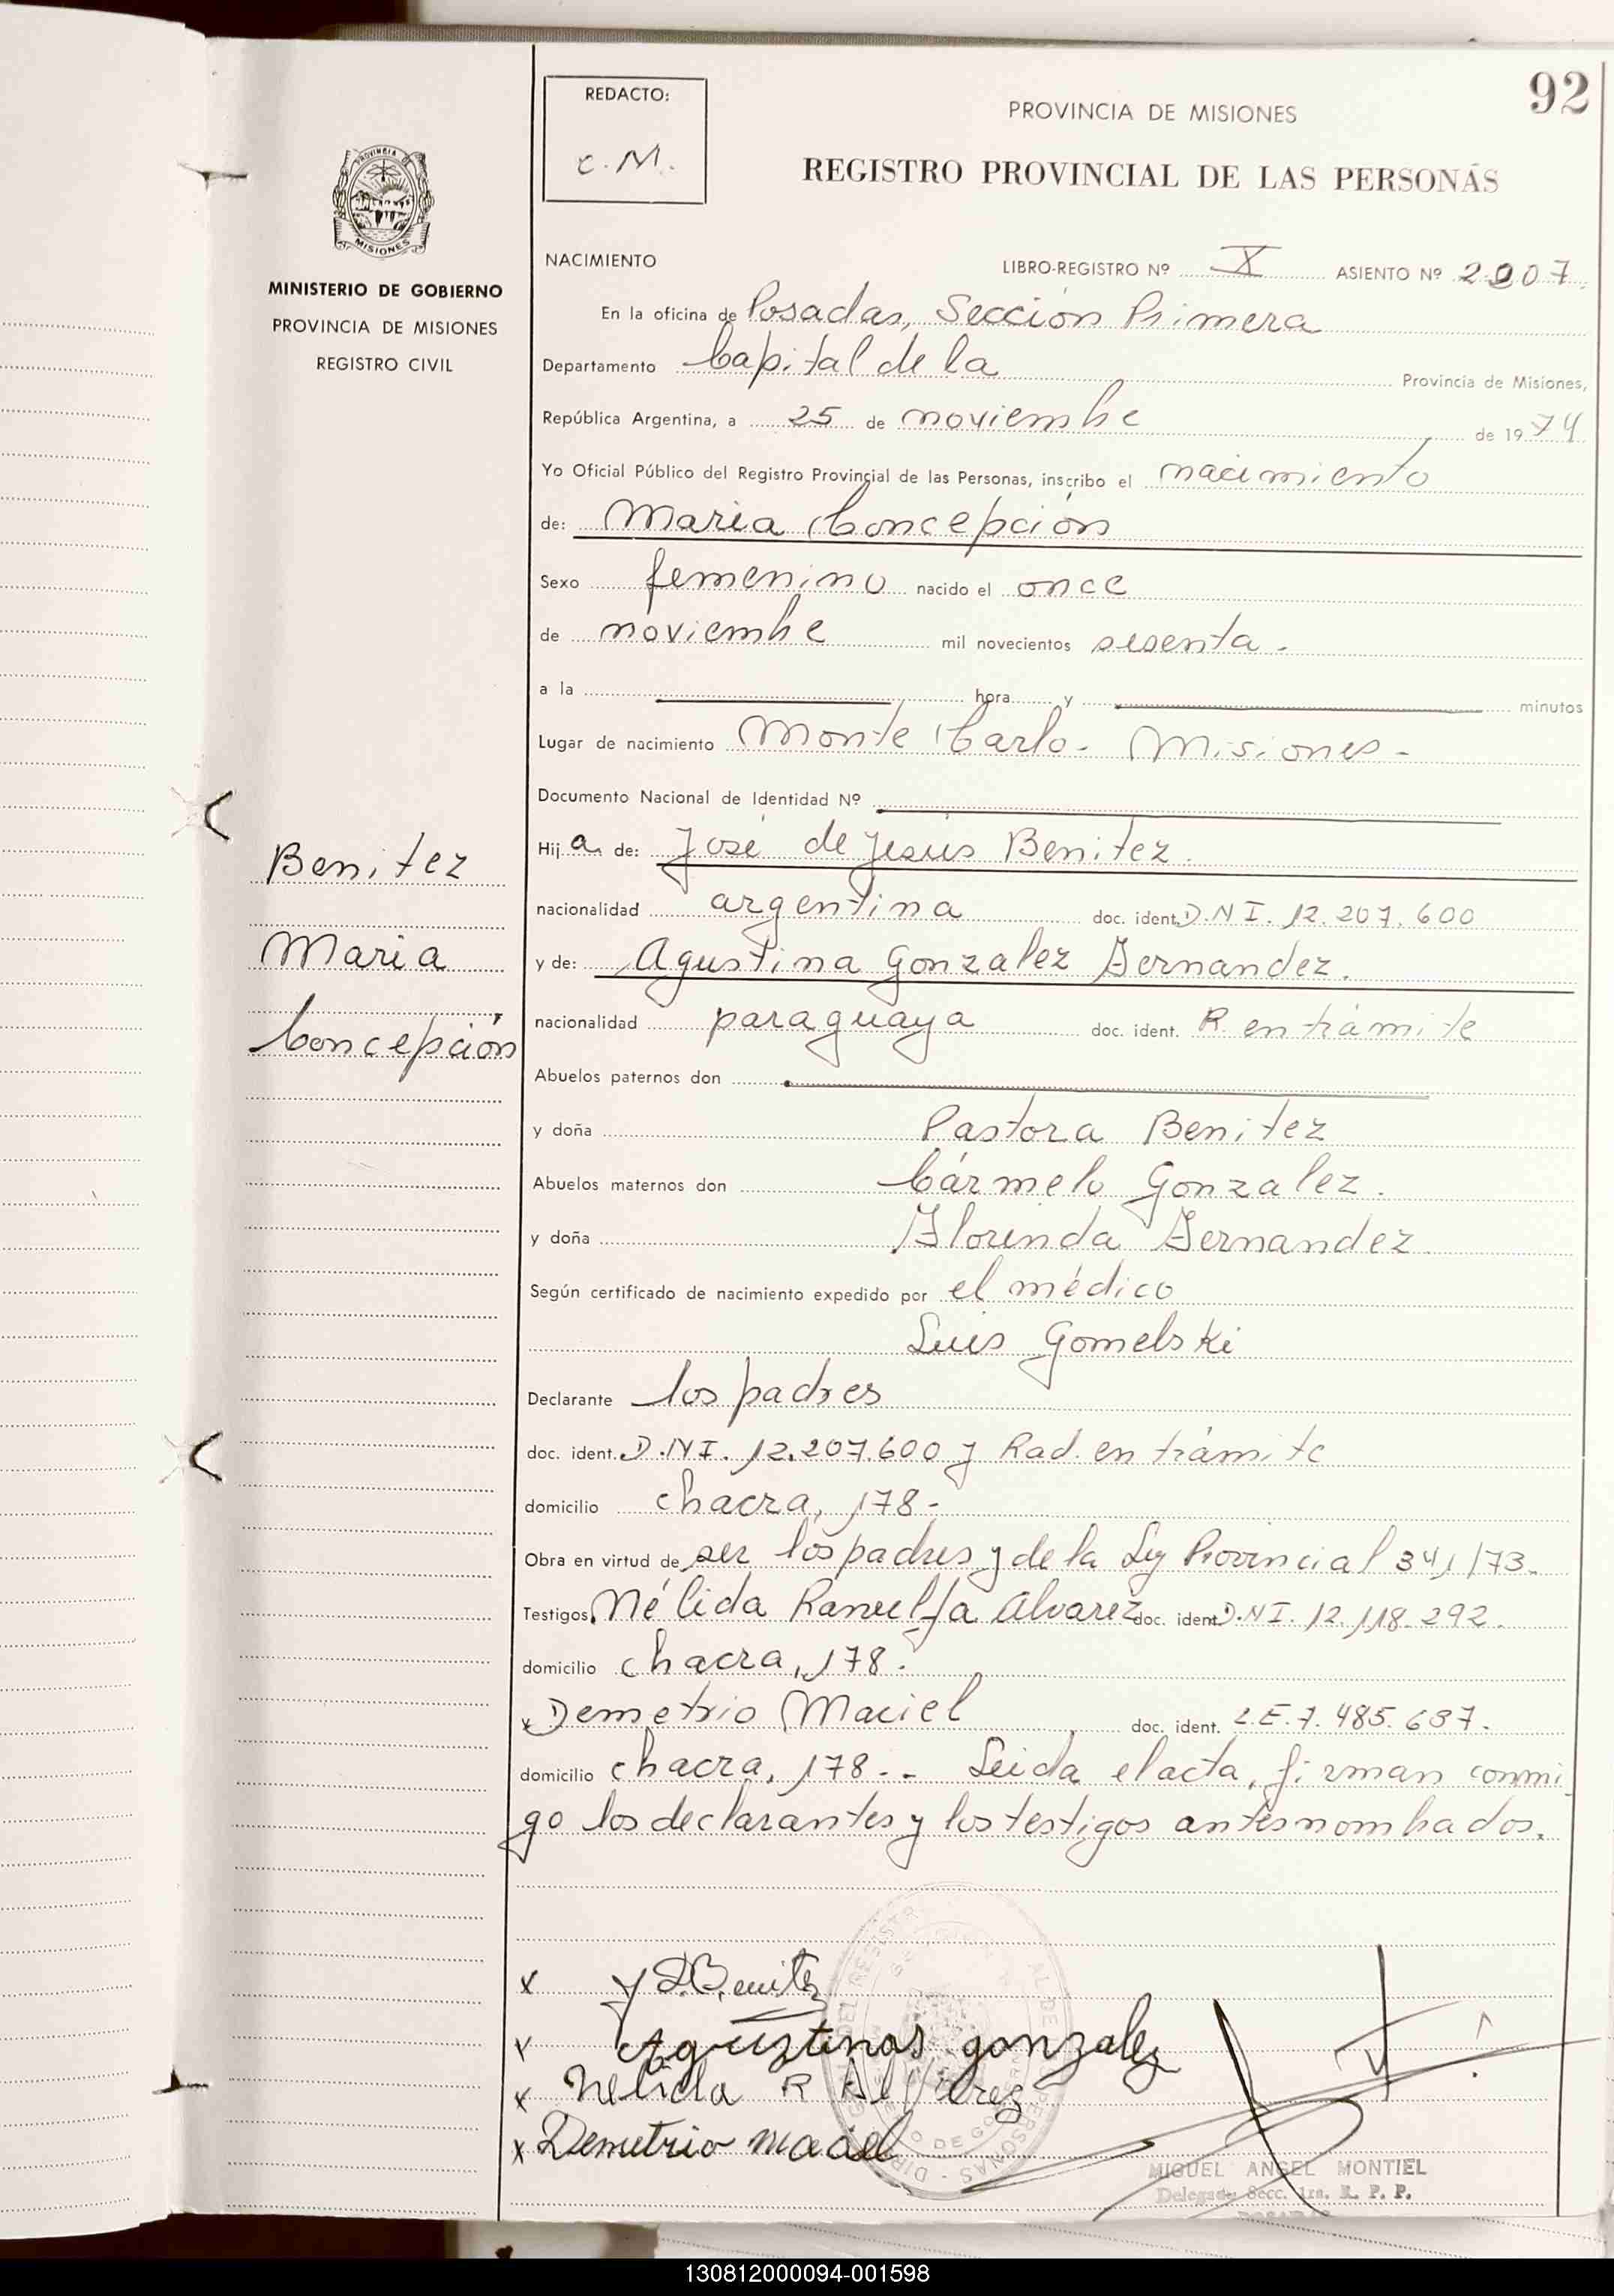 92
REDACTO:
C.M.
PROVINCIA DE MISIONES
REGISTRO PROVINCIAL DE LAS PERSONAS
PROVINCIA
MISIONES
MINISTERIO DE GOBIERNO
PROVINCIA DE MISIONES
REGISTRO CIVIL
NACIMIENTO LIBRO-REGISTRO Nº X ASIENTO Nº 2007.
En la oficina de Posadas, Sección Primera
Departamento Capital de la Provincia de Misiones,
República Argentina, a 25 de noviembre de 1974
Yo Oficial Público del Registro Provincial de las Personas, inscribo el nacimiento
de: Maria Concepción
Sexo femenino nacido el once
de noviembre mil novecientos sesenta.
a la hora y minutos
Lugar de nacimiento Monte Carlo - Misiones -
Documento Nacional de Identidad Nº
Benitez
Maria
Concepción
Hija de: José de Jesús Benitez.
nacionalidad argentina doc. ident. D.N.I. 12.207.600
y de: Agustina Gonzalez Fernandez.
nacionalidad paraguaya doc. ident. R. en trámite
Abuelos paternos don
y doña Pastora Benitez
Abuelos maternos don Cármelo Gonzalez.
y doña Florinda Fernandez.
Según certificado de nacimiento expedido por el médico
Luis Gomelski
Declarante los padres
doc. ident. D.N.I. 12.207.600 y Rad. en trámite
domicilio chacra, 178-
Obra en virtud de ser los padres y de la Ley Provincial 341/73.
Testigos Nélida Alvarez doc. ident. D.N.I. 12.118.292.
domicilio chacra, 178.
y Demetrio Maciel doc. ident. L.E. 7.485.637.
domicilio chacra, 178.- Leida el acta, firman conmi
go los declarantes y los testigos antesnombrados.
x J D.Benitez
x Agustinas gonzalez
x Nelida R
x Demetrio maciel
MIGUEL ANGEL MONTIEL
Delegado Secc. 1ra. R. P. P.
POSADAS
130812000094-001598